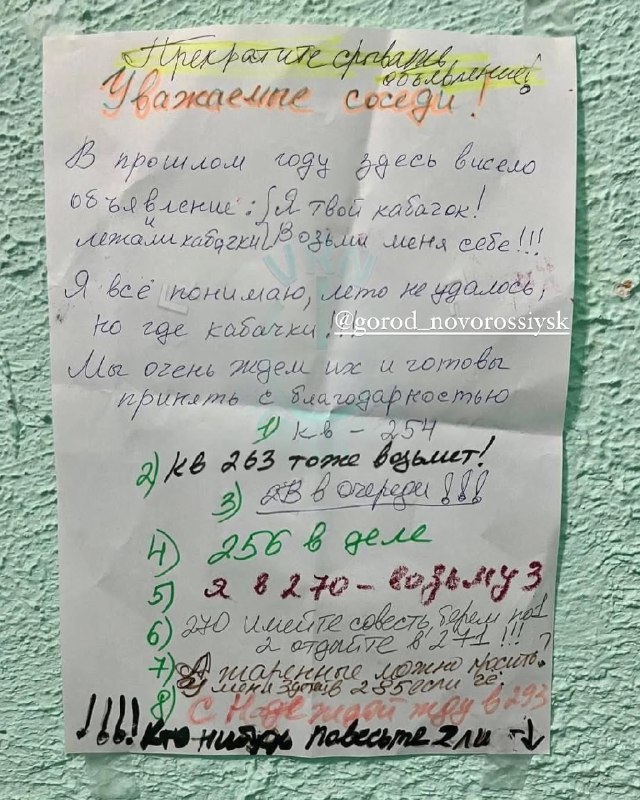 Прекратите срывать
объявление!
Уважаемые соседи!
В прошлом году здесь висело
объявление: Я твой кабачок!
и
лежали кабачки) Возьми меня себе!!!
Я всё понимаю, лето не удалось,
но где кабачки!!!
@gorod_novorossiysk
Мы очень ждем их и готовы
принять с благодарностью
1) кв - 254
2) кв 263 тоже возьмет!
3) в очереди!!!
4) 256 в деле
5) Я в 270 - возьму 3
6) 270 имейте совесть, берем по 1
2 отдайте в 271!!!
7) А жаренные можно носить?
У меня 235 если че.
8) С Надеждой жду в 293
!!!! Кто нибудь повесьте 2 ли